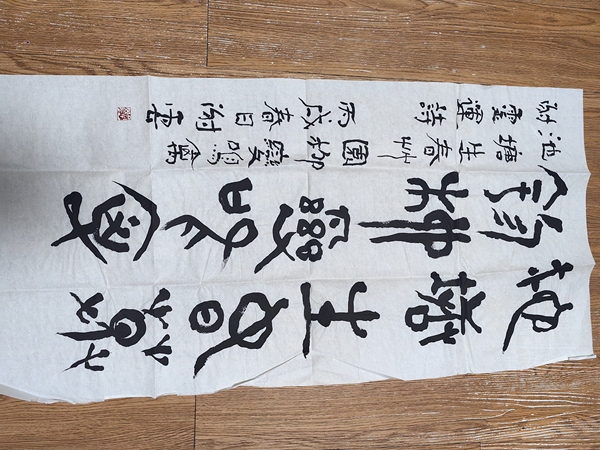 池塘生春草
園柳變鳴禽
池塘生春艸園柳變鳴禽
謝靈運詩丙戌春日謝雲